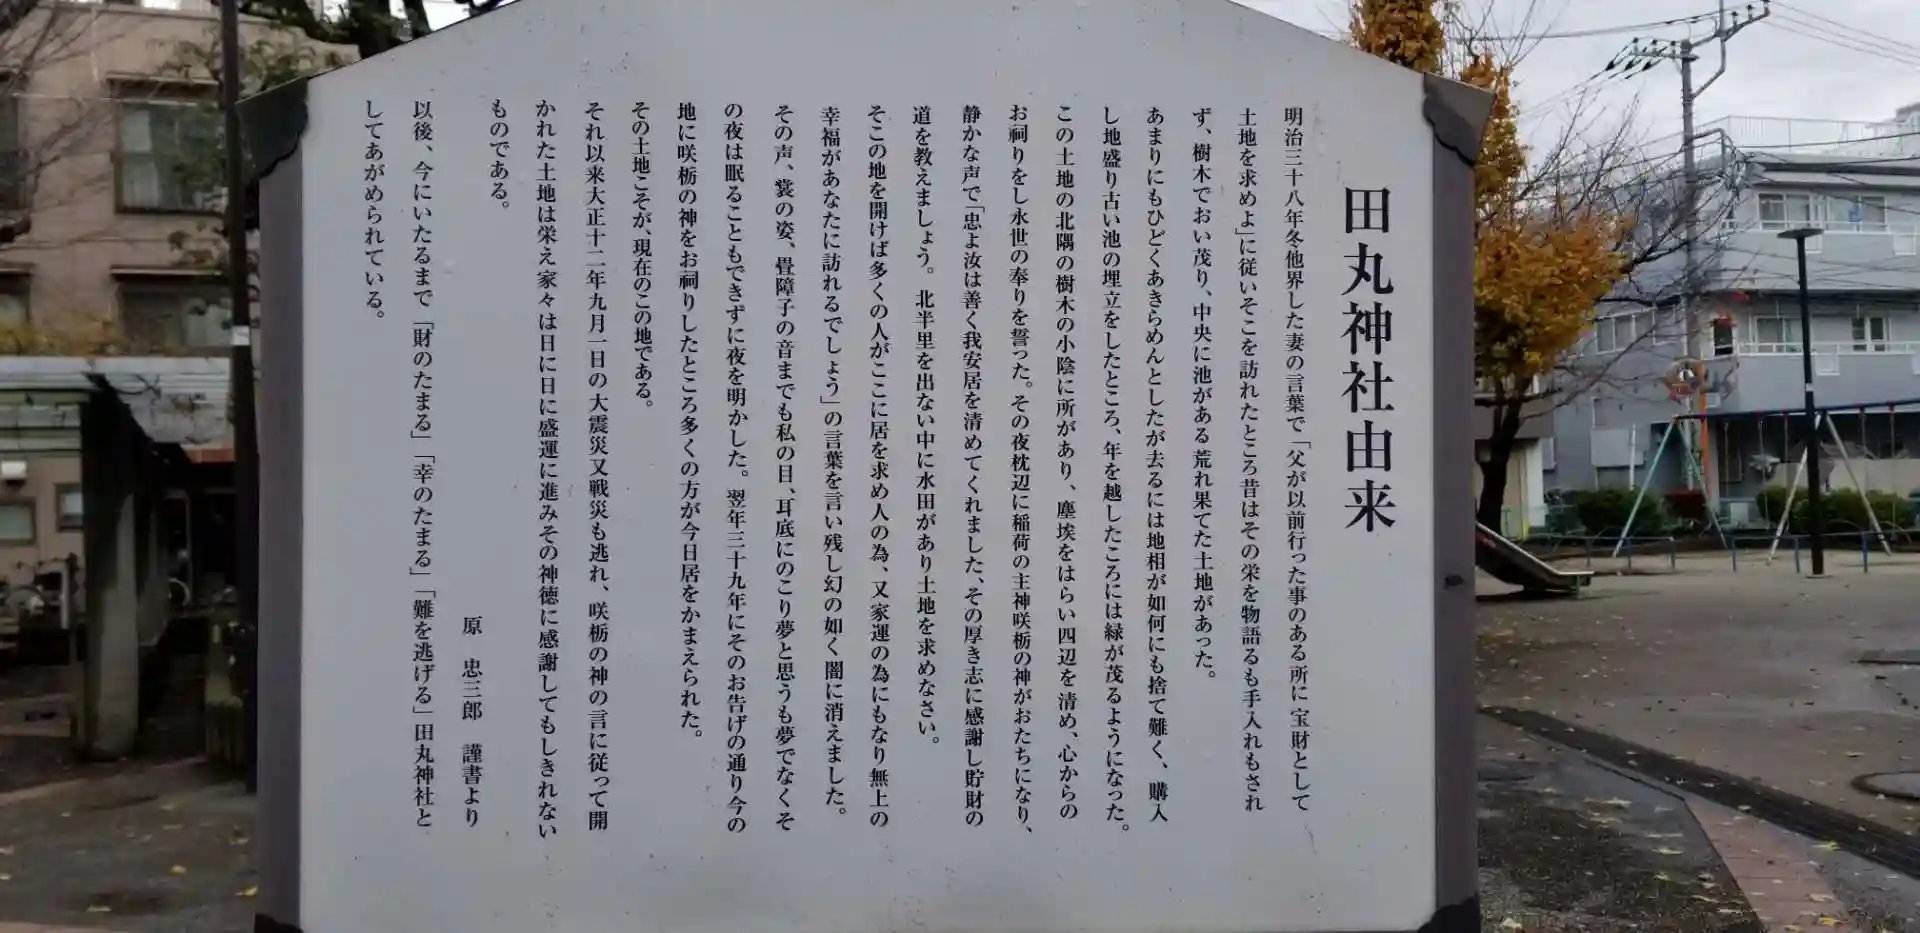 田丸神社由来
明治三十八年冬他界した妻の言葉で「父が以前行った事のある所に宝財として
土地を求めよ」に従いそこを訪れたところ昔はその栄を物語るも手入れもされ
ず、樹木でおい茂り、中央に池がある荒れ果てた土地があった。
あまりにもひどくあきらめんとしたが去るには地相が如何にも捨て難く、購入
し地盛り古い池の埋立をしたところ、年を越したころには緑が茂るようになった。
この土地の北隅の樹木の小陰に所があり、塵埃をはらい四辺を清め、心からの
お祠りをし永世の奉りを誓った。その夜枕辺に稲荷の主神咲栃の神がおたちになり、
静かな声で「忠よ汝は善く我安居を清めてくれました、その厚き志に感謝し貯財の
道を教えましょう。北半里を出ない中に水田があり土地を求めなさい。
そこの地を開けば多くの人がここに居を求め人の為、又家運の為にもなり無上の
幸福があなたに訪れるでしょう」の言葉を言い残し幻の如く闇に消えました。
その声、裳の姿、畳障子の音までも私の目、耳底にのこり夢と思うも夢でなくそ
の夜は眠ることもできずに夜を明かした。翌年三十九年にそのお告げの通り今の
地に咲栃の神をお祠りしたところ多くの方が今日居をかまえられた。
その土地こそが、現在のこの地である。
それ以来大正十二年九月一日の大震災又戦災も逃れ、咲栃の神の言に従って開
かれた土地は栄え家々は日に日に盛運に進みその神徳に感謝してもしきれない
ものである。
原　忠三郎　謹書より
以後、今にいたるまで「財のたまる」「幸のたまる」「難を逃げる」田丸神社と
してあがめられている。